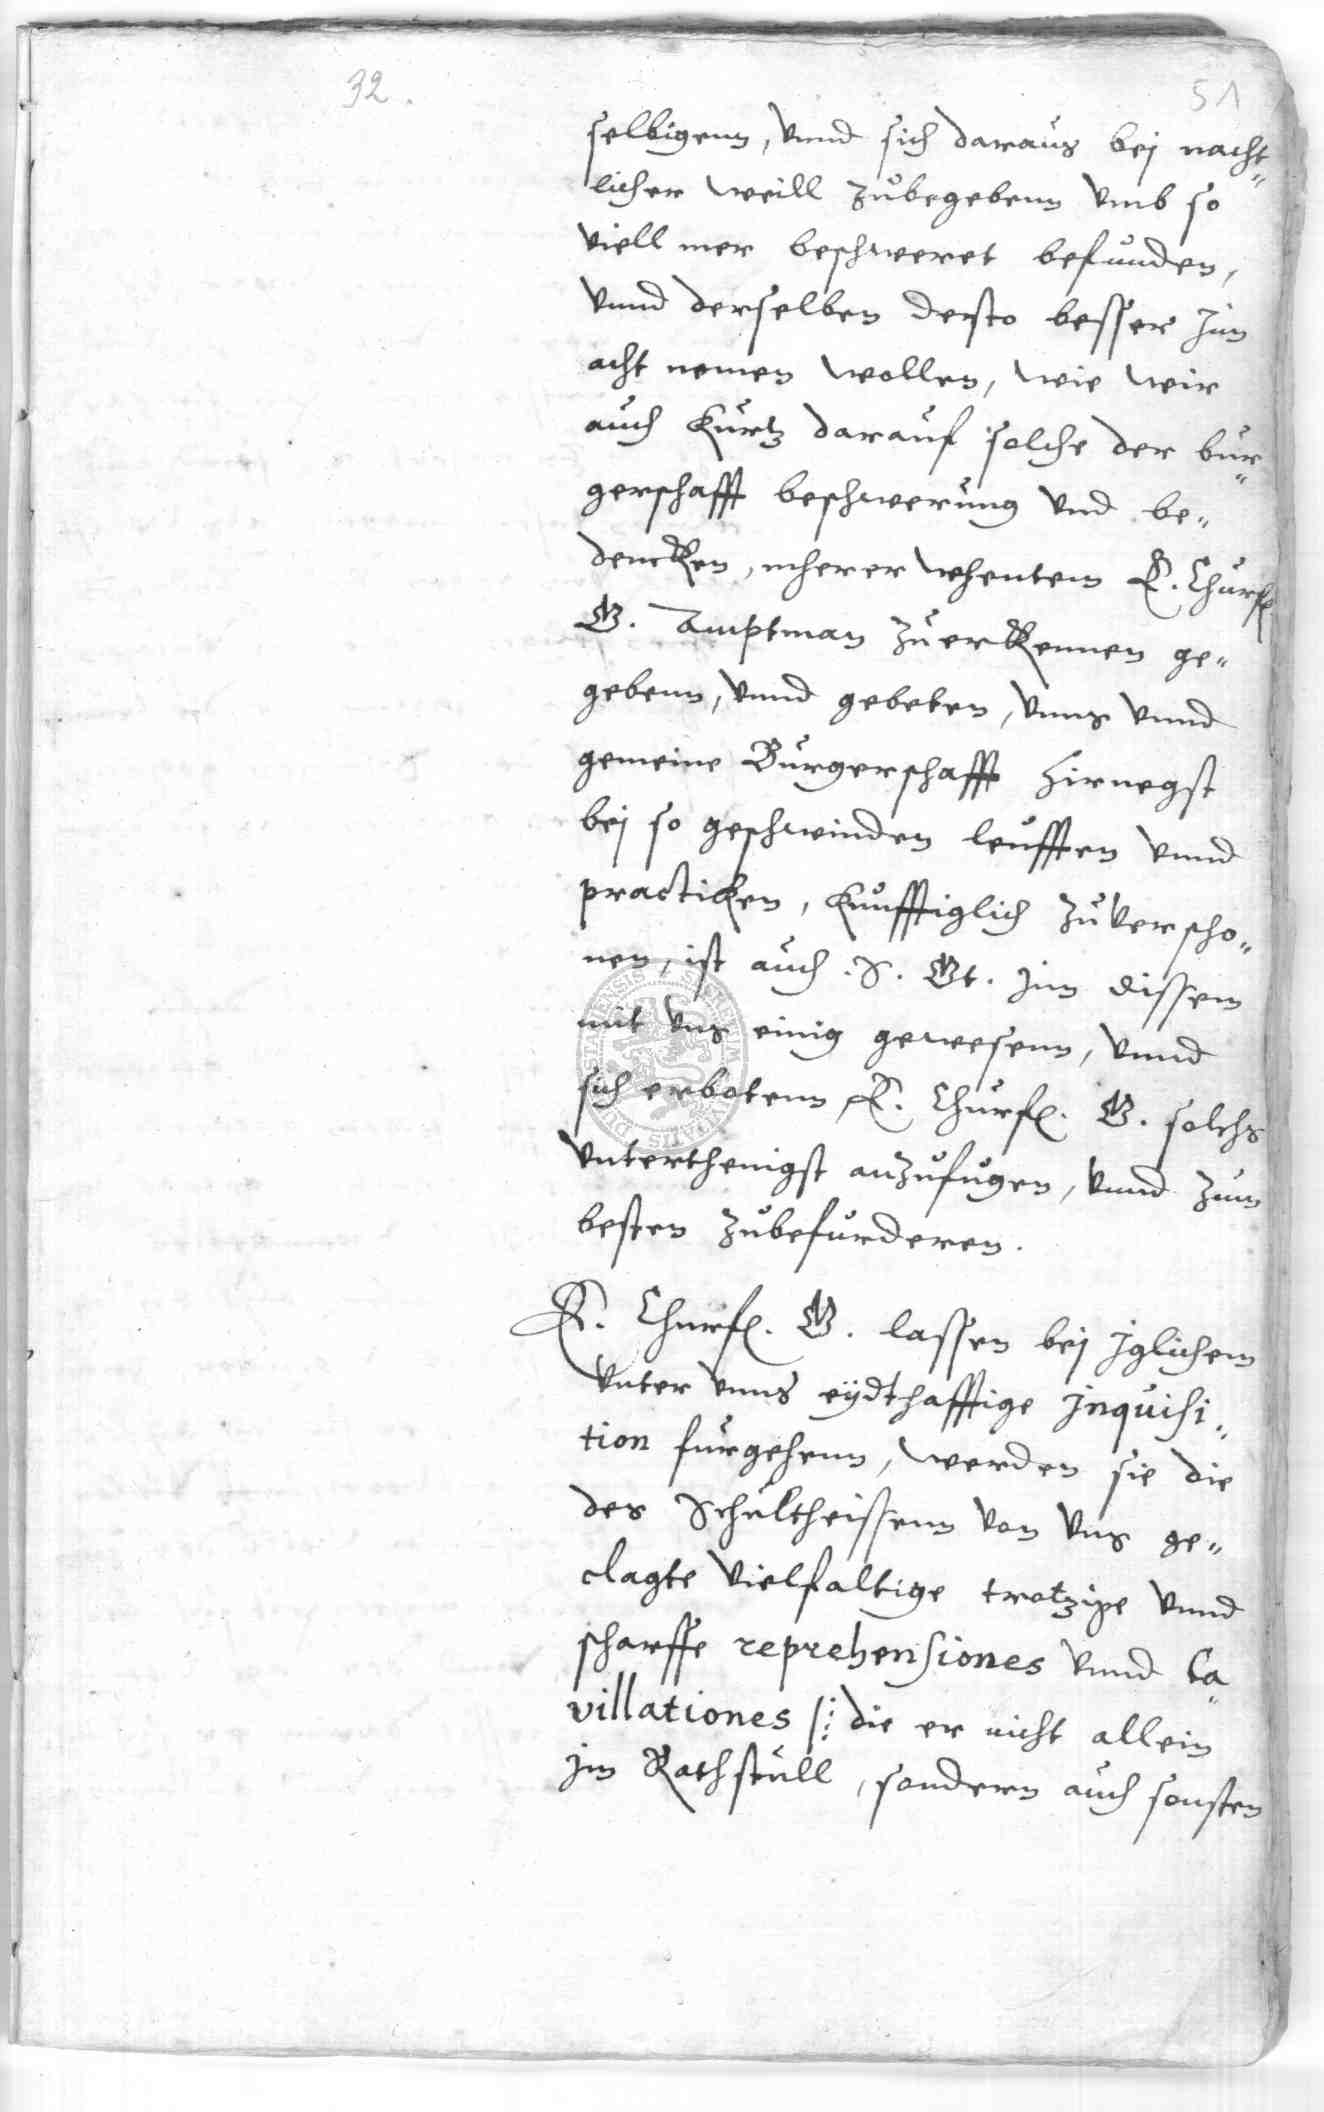 32.
51
selbigenn, vnnd sich daraus bej nacht„
licher weill zubegebenn vmb so
viell mer beschweret befunden,
vnnd derselben desto besser jnn
acht nemen wollen, wie wir
auch kurtz darauf solche der bur„
gerschafft beschwerung vnd be„
dencken, mherer E. Churf.
G. Amptman zuerkennen ge„
gebenn, vnnd gebeten, vnns vnnd
gemeine Burgerschafft hirnegst
bej so geschwinden leufften vnnd
practicken, kunfftiglich zuverscho„
nen, ist auch S. Gt. jnn dissem
mit vns einig gewesenn, vnnd
sich erbotenn E. Churf. G. solchs
vnterthenigst anzufugen, vnnd zum
besten zubefurderen.
E. Churf. G. lassen bej jglichem
vnter vnns eÿdthafftige jnquisi„
tion furgehenn, werden sie die
des Schultheissenn von vns ge„
clagte vielfaltige trotzige vnnd
scharffe reprehensiones vnnd Ca„
villationes |: die er nicht allein
jm Rathstull, sondern auch sonsten